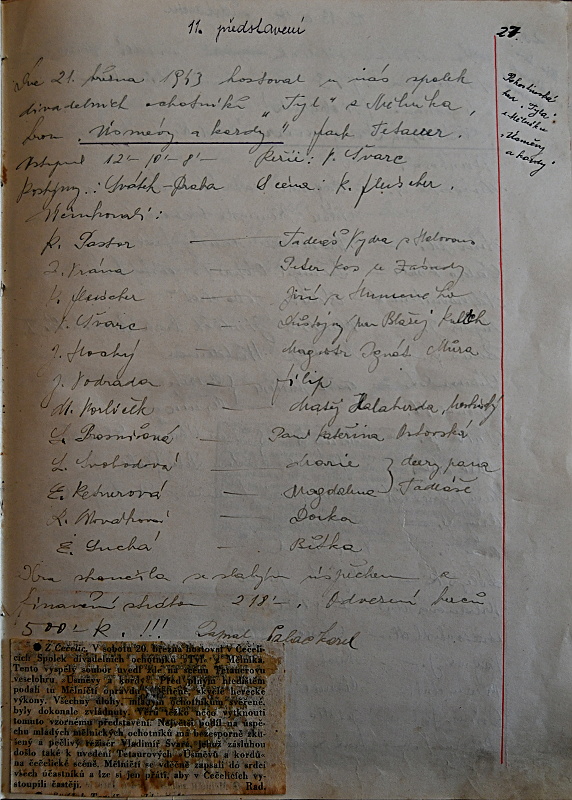 11. představení
27
Dne 21. března 1943 hostoval u nás spolek
divadelních ochotníků "Tyl" z Mělníka,
"Úsměvy a kordy" Frant. Tetauer.
Vstupné 12'- 10'- 8'- Režie: V. Švarc
Kostýmy: Svátek-Praha Scéna: K. Fleischer.
Účinkovali:
K. Pastor — Tadeáš Vydra z
J. Vrána — Peter Kos ze Zásady
K. Fleischer — Jiří z
V. Švarc — Důstojný pan Blažej
J. Hochý — Magistr Ignát Můra
J. Vodrada — Filip
M. Horlíček — Matěj Halaburda,
L. — Paní Kateřina
L. Svobodová — Marie } dcery pana
E. — Magdalena } Tadeáše
— Dorka
E. Suchá — Bětka
Hra skončila se slabým úspěchem a
finanční ztrátou 218'-. Odvezli
500'- K. !!! Zapsal
Pohostinská
hra "Tyla"
z Mělníka
"Úsměvy
a kordy"
● Z Čečelic. V sobotu 20. března hostoval v Čečeli-
cích Spolek divadelních ochotníků „Tyl" z Mělníka.
Tento vyspělý soubor uvedl zde na scénu Tetauerovu
veselohru „Úsměvy a kordy". Před plným hledištěm
podali tu Mělničtí opravdu skvělé herecké
výkony. Všechny úlohy, mladým ochotníkům svěřené,
byly dokonale zvládnuty. Věru těžko něco vytknouti
tomuto vzornému představení. Největší podíl na úspě-
chu mladých mělnických ochotníků má bezesporně zku-
šený a pečlivý režisér Vladimír Švarc, jehož zásluhou
došlo také k uvedení Tetauerových „Úsměvů a kordů"
na čečelické scéně. Mělničtí se vděčně zapsali do srdcí
všech účastníků a lze si jen přáti, aby v Čečelicích vy-
stoupili častěji. Rad.